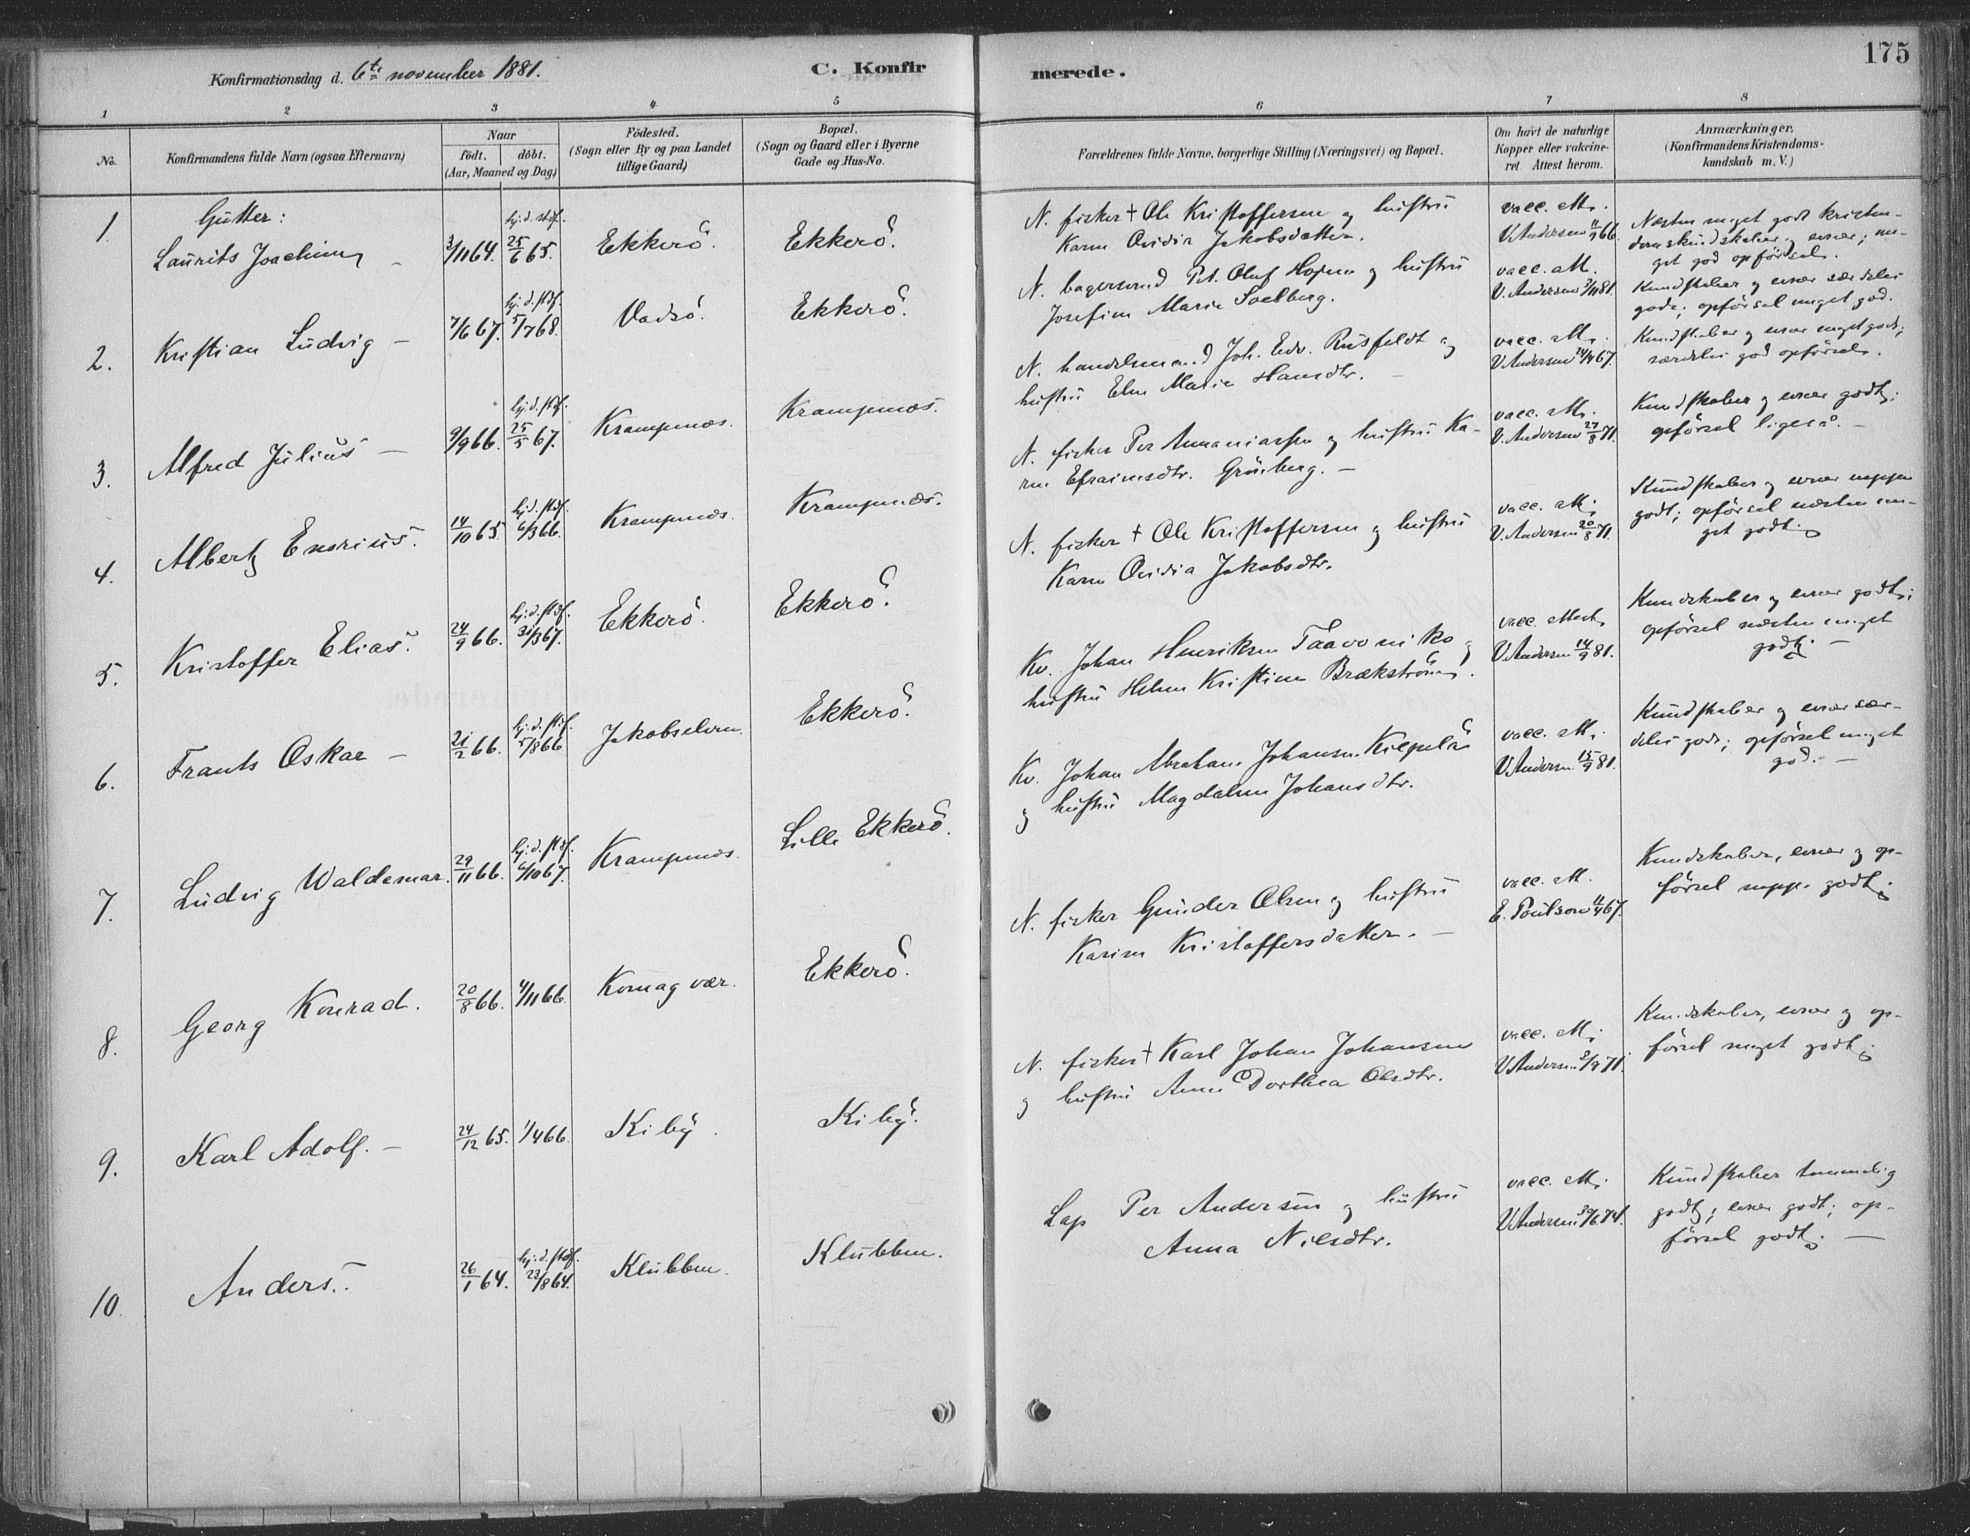 175
Konfirmationsdag d. 6te november 1881.
C. Konfirmerede.
1 2 3 4 5 6 7 8
No.
Konfirmandens fulde Navn (ogsaa Efternavn)
Naar
födt. döbt.
(Aar, Maaned og Dag)
Födested.
(Sogn eller By og paa Landet
tillige Gaard)
Bopæl.
(Sogn og Gaard eller i Byerne
Gade og Hus-No.
Forældrenes fulde Navne, borgerlige Stilling (Næringsvei) og Bopæl.
Om havt de naturlige
Kopper eller vakcine-
ret. Attest herom.
Anmærkninger.
(Konfirmandens Kristendoms-
kundskab m. V.)
Gutter:
1. Laurits Joachim 3/11 64. hj. d. stdf. 25/6 65. Ekkerö. Ekkerö.
N. fisker + Ole Kristoffersen og hustru
Karen Ovidia Jakobsdatter.
vacc. att.
V. Andersen 11/9 66.
Næsten meget godt kristen-
domskundskaber og evner; me-
get god opförsel.
2. Kristian Ludvig – 7/6 67. hj. d. stdf. 5/7 68. Vadsö. Ekkerö.
N. bagersvend Pet. Oluf Hojem og hustru
Josefine Marie Soelberg.
vacc. att.
V. Andersen 3/11 81.
Kundskaber og evner særdeles
gode; opförsel meget god.
3. Alfred Julius – 9/9 66. hj. d. stdf. 25/5 67. Krampenæs. Krampenæs.
N. handelsmand Joh. Edv. Rusfeldt og
hustru Elen Marie Hansdtr. –
vacc. att.
V. Andersen 24/9 67.
Kundskaber og evner meget godt;
særdeles god opförsel.
4. Albert Enorius. 14/10 65. hj. d. stdf. 6/3 66. Krampenæs. Krampenæs.
N. fisker Per Annaniassen og hustru Ka-
ren Efraimsdtr. Grönberg. –
vacc. att.
V. Andersen 27/8 71.
Kundskaber og evner godt;
opförsel ligeså. –
5. Kristoffer Elias. 24/9 66. hj. d. stdf. 31/3 67. Ekkerö. Ekkerö.
N. fisker + Ole Kristoffersen og hustru
Karen Ovidia Jakobsdtr.
vacc. att.
V. Andersen 20/8 71.
Kundskaber og evner neppe
godt; opförsel næsten me-
get godt.
6. Frants Oskar – 21/2 66. hj. d. stdf. 5/8 66 Jakobselven. Ekkerö.
Kv. Johan Henriksen Taavoniko og
hustru Helene Kristine Brækström.
vacc. attest
V. Andersen 14/9 81.
Kundskaber og evner godt;
opförsel næsten meget
godt. –
7. Ludvig Waldemar. 29/11 66. hj. d. stdf. 6/10 67. Krampenæs. Lille Ekkerö.
Kv. Johan Abraham Johansen Kilpelä
og hustru Magdalena Johansdtr.
vacc. att.
V. Andersen 15/9 81.
Kundskaber og evner sær-
deles gode; opförsel meget
god. –
8. Georg Konrad. 20/8 66. 4/11 66. Komagvær. Ekkerö.
N. fisker Gunder Olsen og hustru
Karen Kristoffersdatter. –
vacc. att.
E. Poulson 11/4 67.
Kundskaber, evner og op-
försel neppe godt.
9. Karl Adolf. – 24/12 65. 1/4 66. Kiby. Kiby.
N. fisker + Karl Johan Johansen
og hustru Anne Dorthea Olsdtr.
vacc. att.
V. Andersen 2/9 71.
Kundskaber, evner og op-
försel meget godt.
10. Anders. 26/1 64. hj. d. stdf. 23/8 64. Klubben. Klubben.
Lap Per Andersen og hustru
Anna Nilsdtr.
vacc. att.
V. Andersen 30/6 74.
Kundskaber temmelig
godt; evner godt; op-
försel godt. –